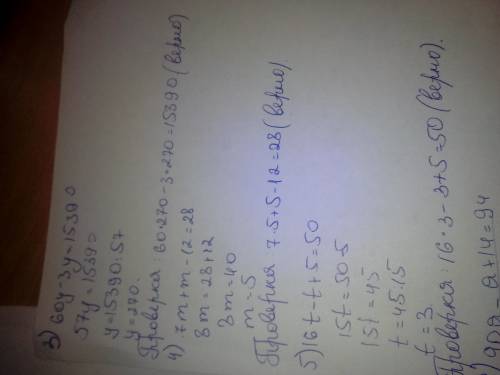 3) 60y-3y=15390
57y=15390
y=15390:57
y=270.
Проверка: 60·270-3·270=15390 (верно)
4) 7m+m-12=28
8m=28+12
8m=40
m=5
Проверка: 7·5+5-12=28 (верно)
5) 16t-t+5=50
15t=50-5
15t=45
t=45:15
t=3.
Проверка: 16·3-3+5=50 (верно).
a+14=94